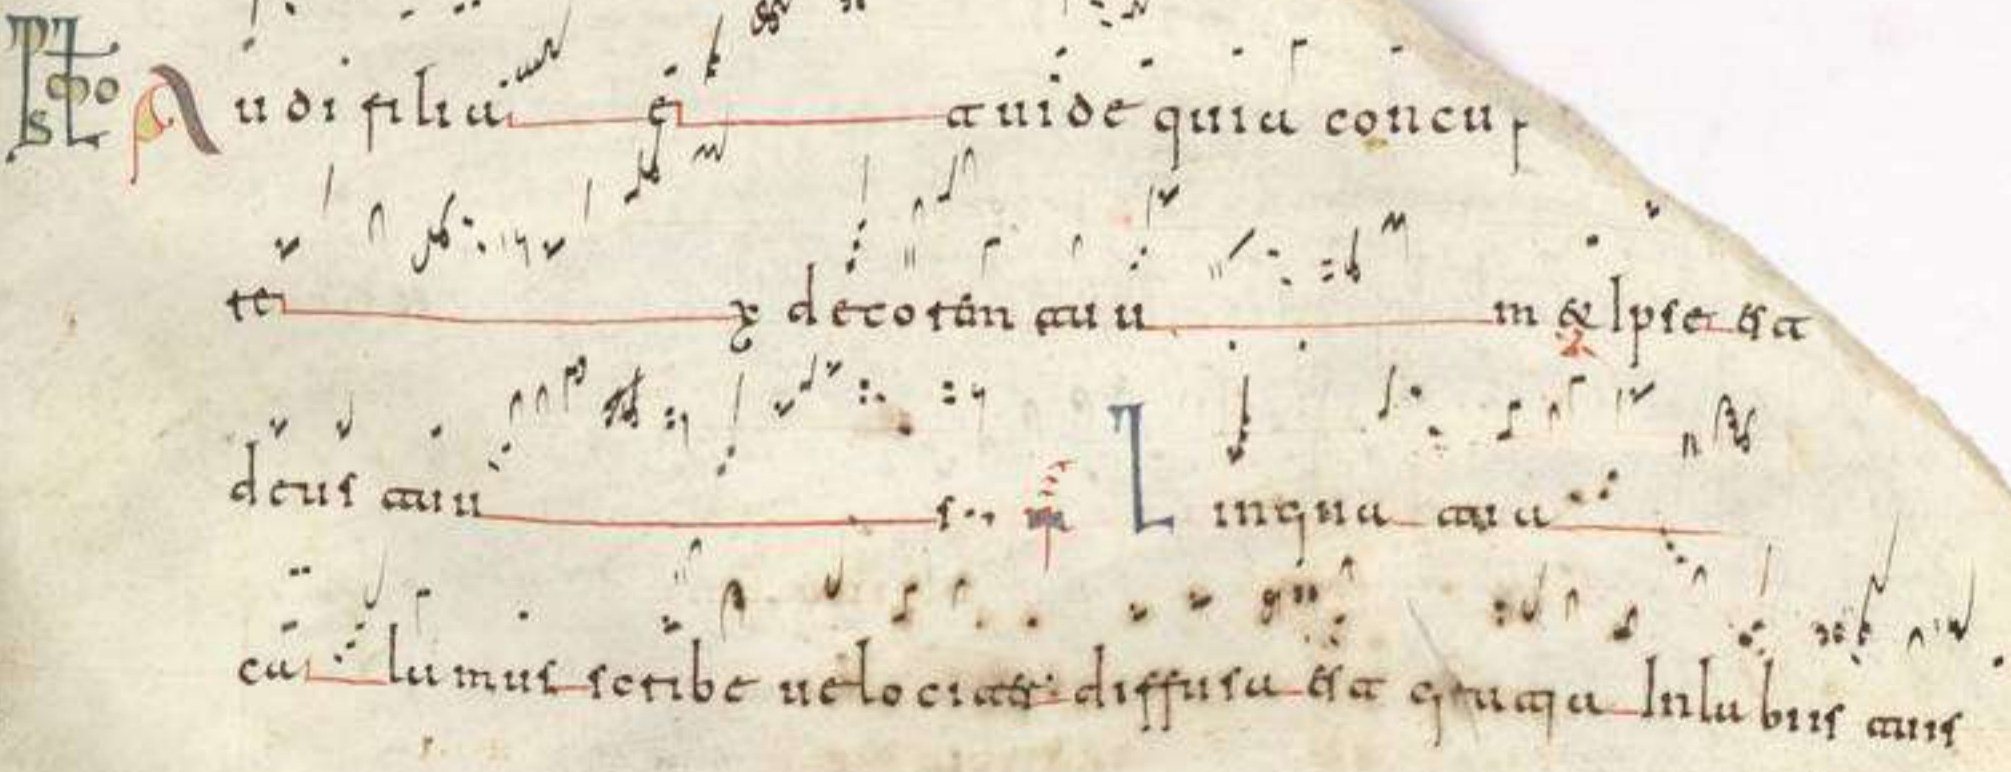 Audi filia et uide quia concup
rex decorem tuum & Ipse est
deus tuus Lingua tua
calamus scribe uelociter diffusa est gratia In labiis tuis